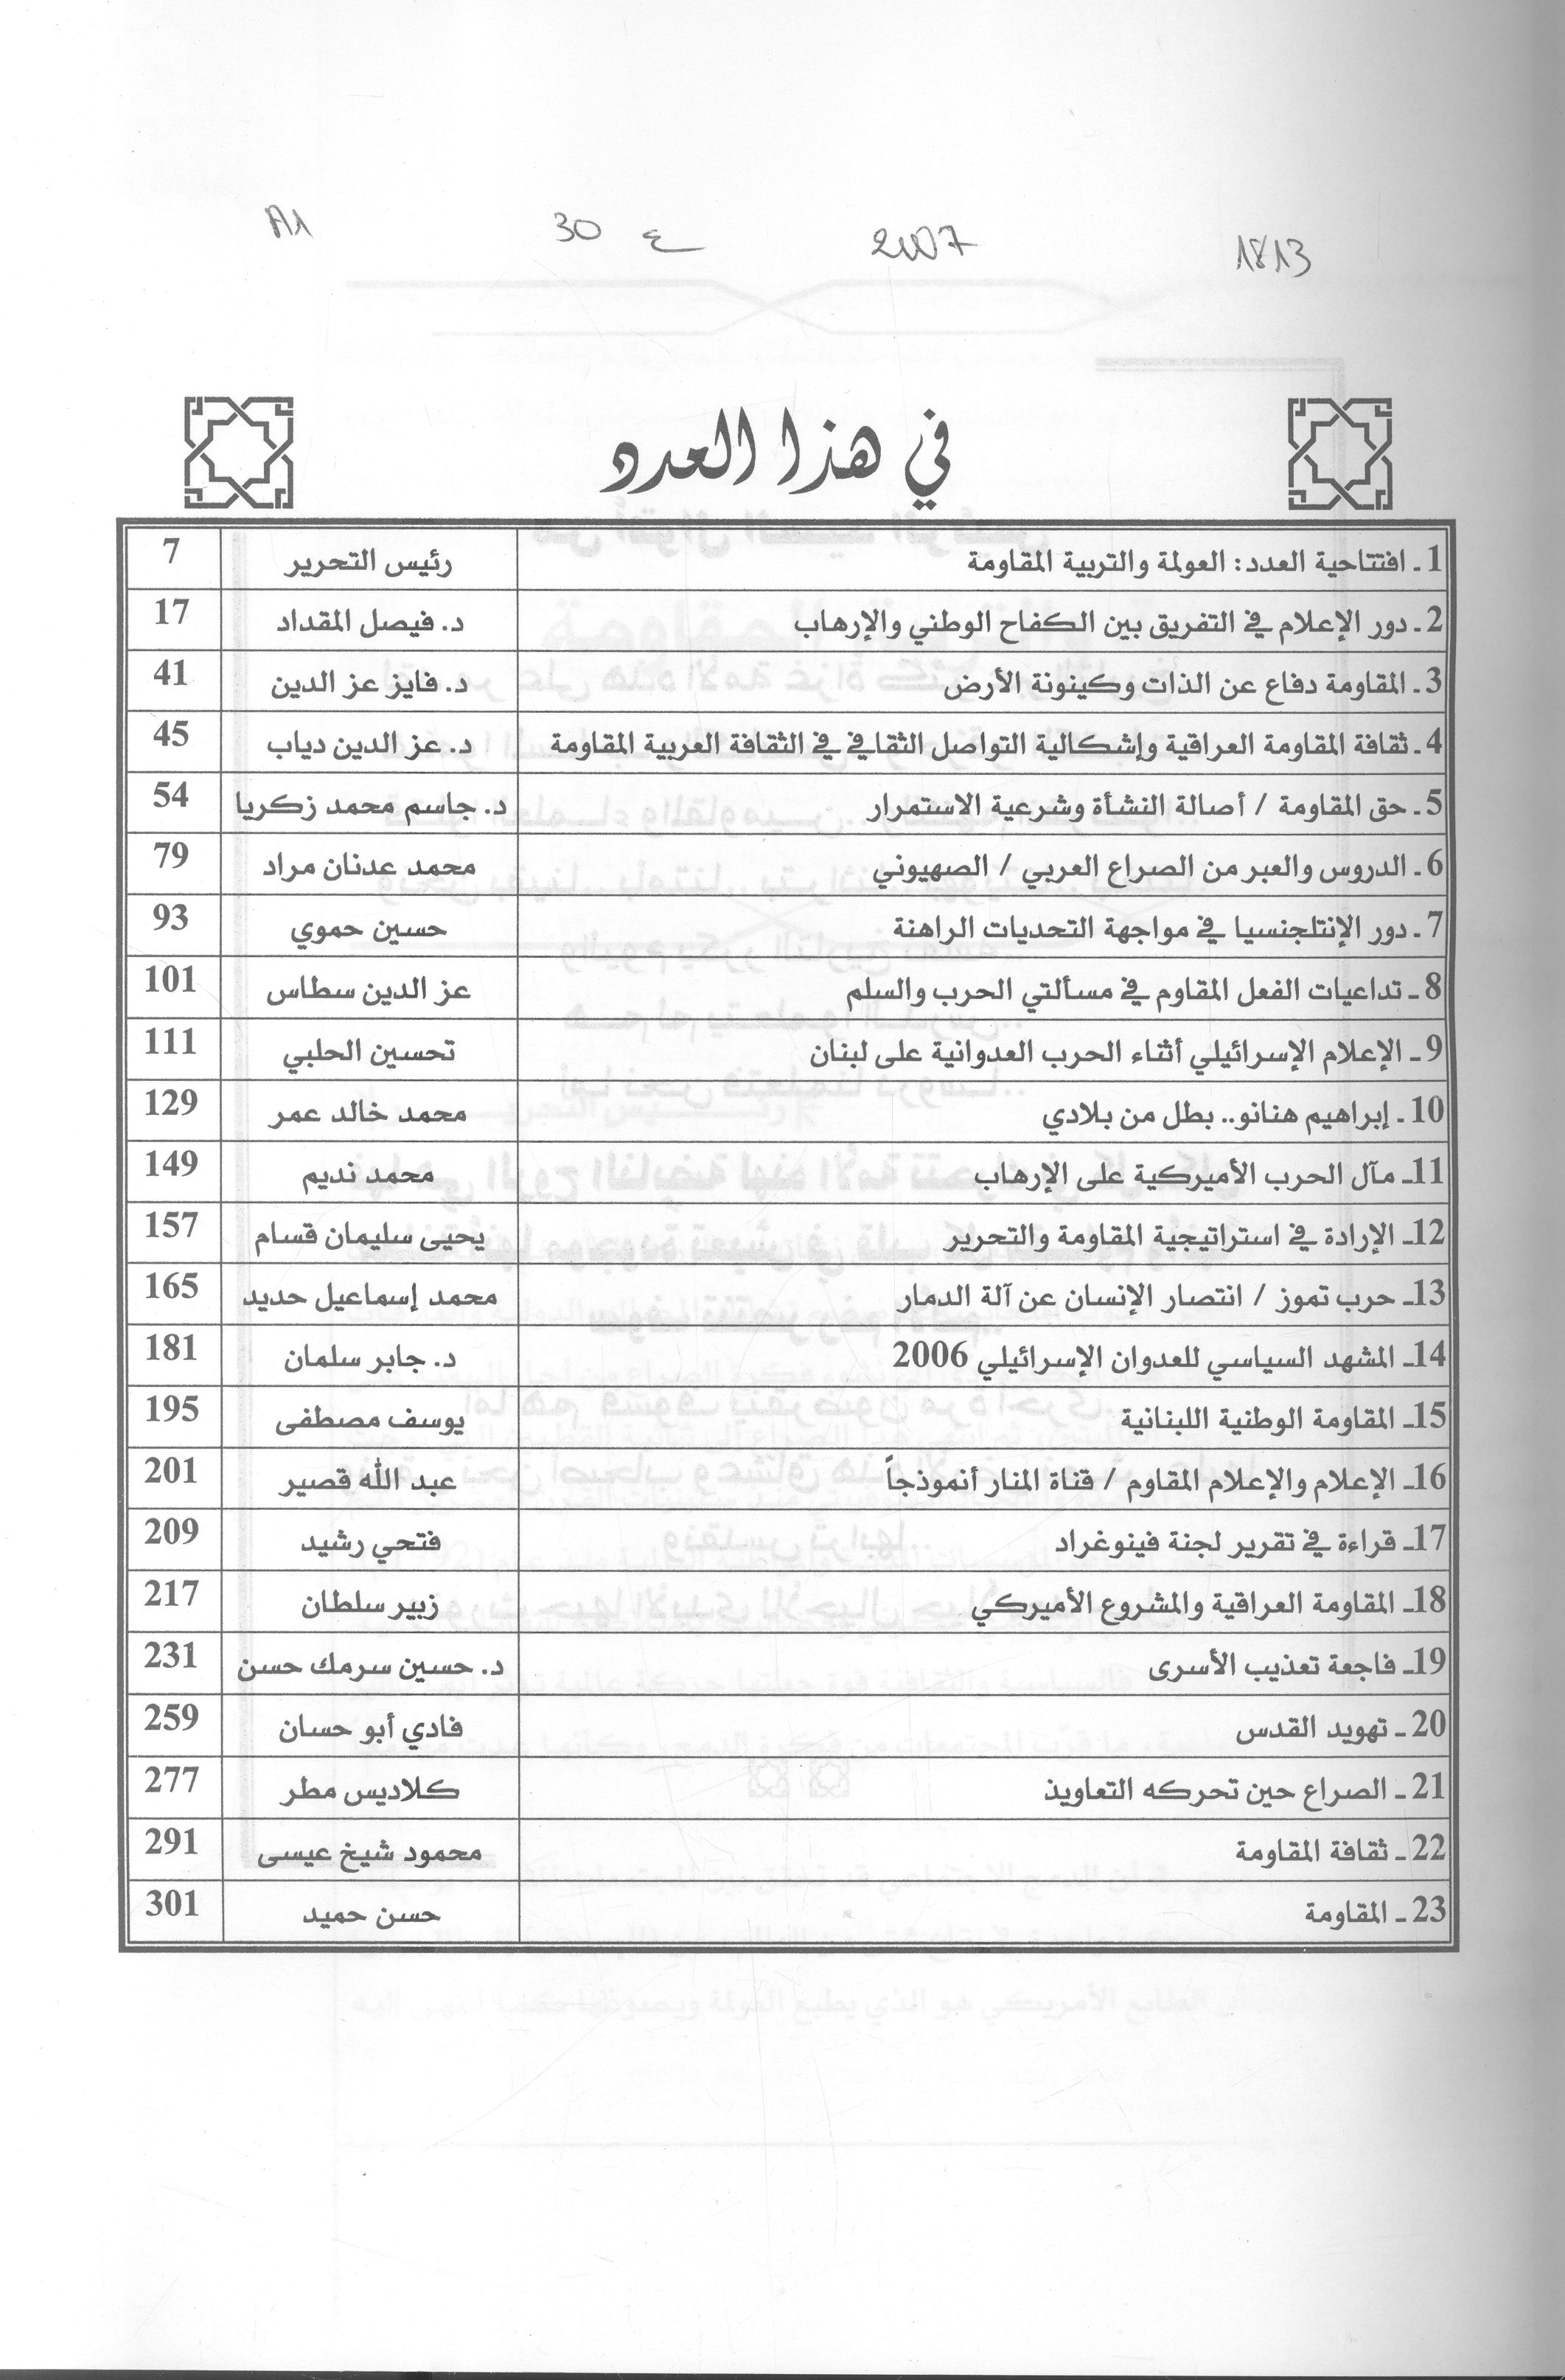 1813 2007 ع 30 A1
في هذا العدد
1ـ افتتاحية العدد: العولمة والتربية المقاومة رئيس التحرير 7
2ـ دور الإعلام في التفريق بين الكفاح الوطني والإرهاب د. فيصل المقداد 17
3ـ المقاومة دفاع عن الذات وكينونة الأرض د. فايز عز الدين 41
4ـ ثقافة المقاومة العراقية وإشكالية التواصل الثقافي في الثقافة العربية المقاومة د. عز الدين دياب 45
5ـ حق المقاومة / أصالة النشأة وشرعية الاستمرار د. جاسم محمد زكريا 54
6ـ الدروس والعبر من الصراع العربي / الصهيوني محمد عدنان مراد 79
7ـ دور الإنتلجنسيا في مواجهة التحديات الراهنة حسين حموي 93
8ـ تداعيات الفعل المقاوم في مسألتي الحرب والسلم عز الدين سطاس 101
9ـ الإعلام الإسرائيلي أثناء الحرب العدوانية على لبنان تحسين الحلبي 111
10ـ إبراهيم هنانو.. بطل من بلادي محمد خالد عمر 129
11ـ مآل الحرب الأميركية على الإرهاب محمد نديم 149
12ـ الإرادة في استراتيجية المقاومة والتحرير يحيى سليمان قسام 157
13ـ حرب تموز / انتصار الإنسان عن آلة الدمار محمد إسماعيل حديد 165
14ـ المشهد السياسي للعدوان الإسرائيلي 2006 د. جابر سلمان 181
15ـ المقاومة الوطنية اللبنانية يوسف مصطفى 195
16ـ الإعلام والإعلام المقاوم / قناة المنار أنموذجاً عبد الله قصير 201
17ـ قراءة في تقرير لجنة فينوغراد فتحي رشيد 209
18ـ المقاومة العراقية والمشروع الأميركي زبير سلطان 217
19ـ فاجعة تعذيب الأسرى د. حسين سرمك حسن 231
20ـ تهويد القدس فادي أبو حسان 259
21ـ الصراع حين تحركه التعاويذ كلاديس مطر 277
22ـ ثقافة المقاومة محمود شيخ عيسى 291
23ـ المقاومة حسن حميد 301